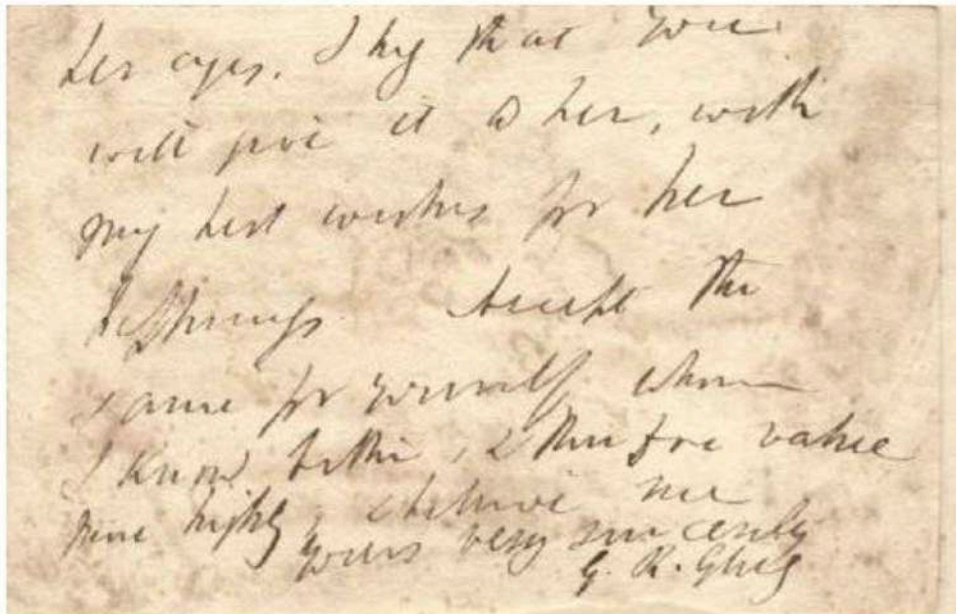 her eyes. I beg that you
will give it to her, with
my best wishes for her
happiness. Accept the
same for yourself whom
I know better, & therefore value
more highly, & believe me
yours very sincerely
G. R. Gleig